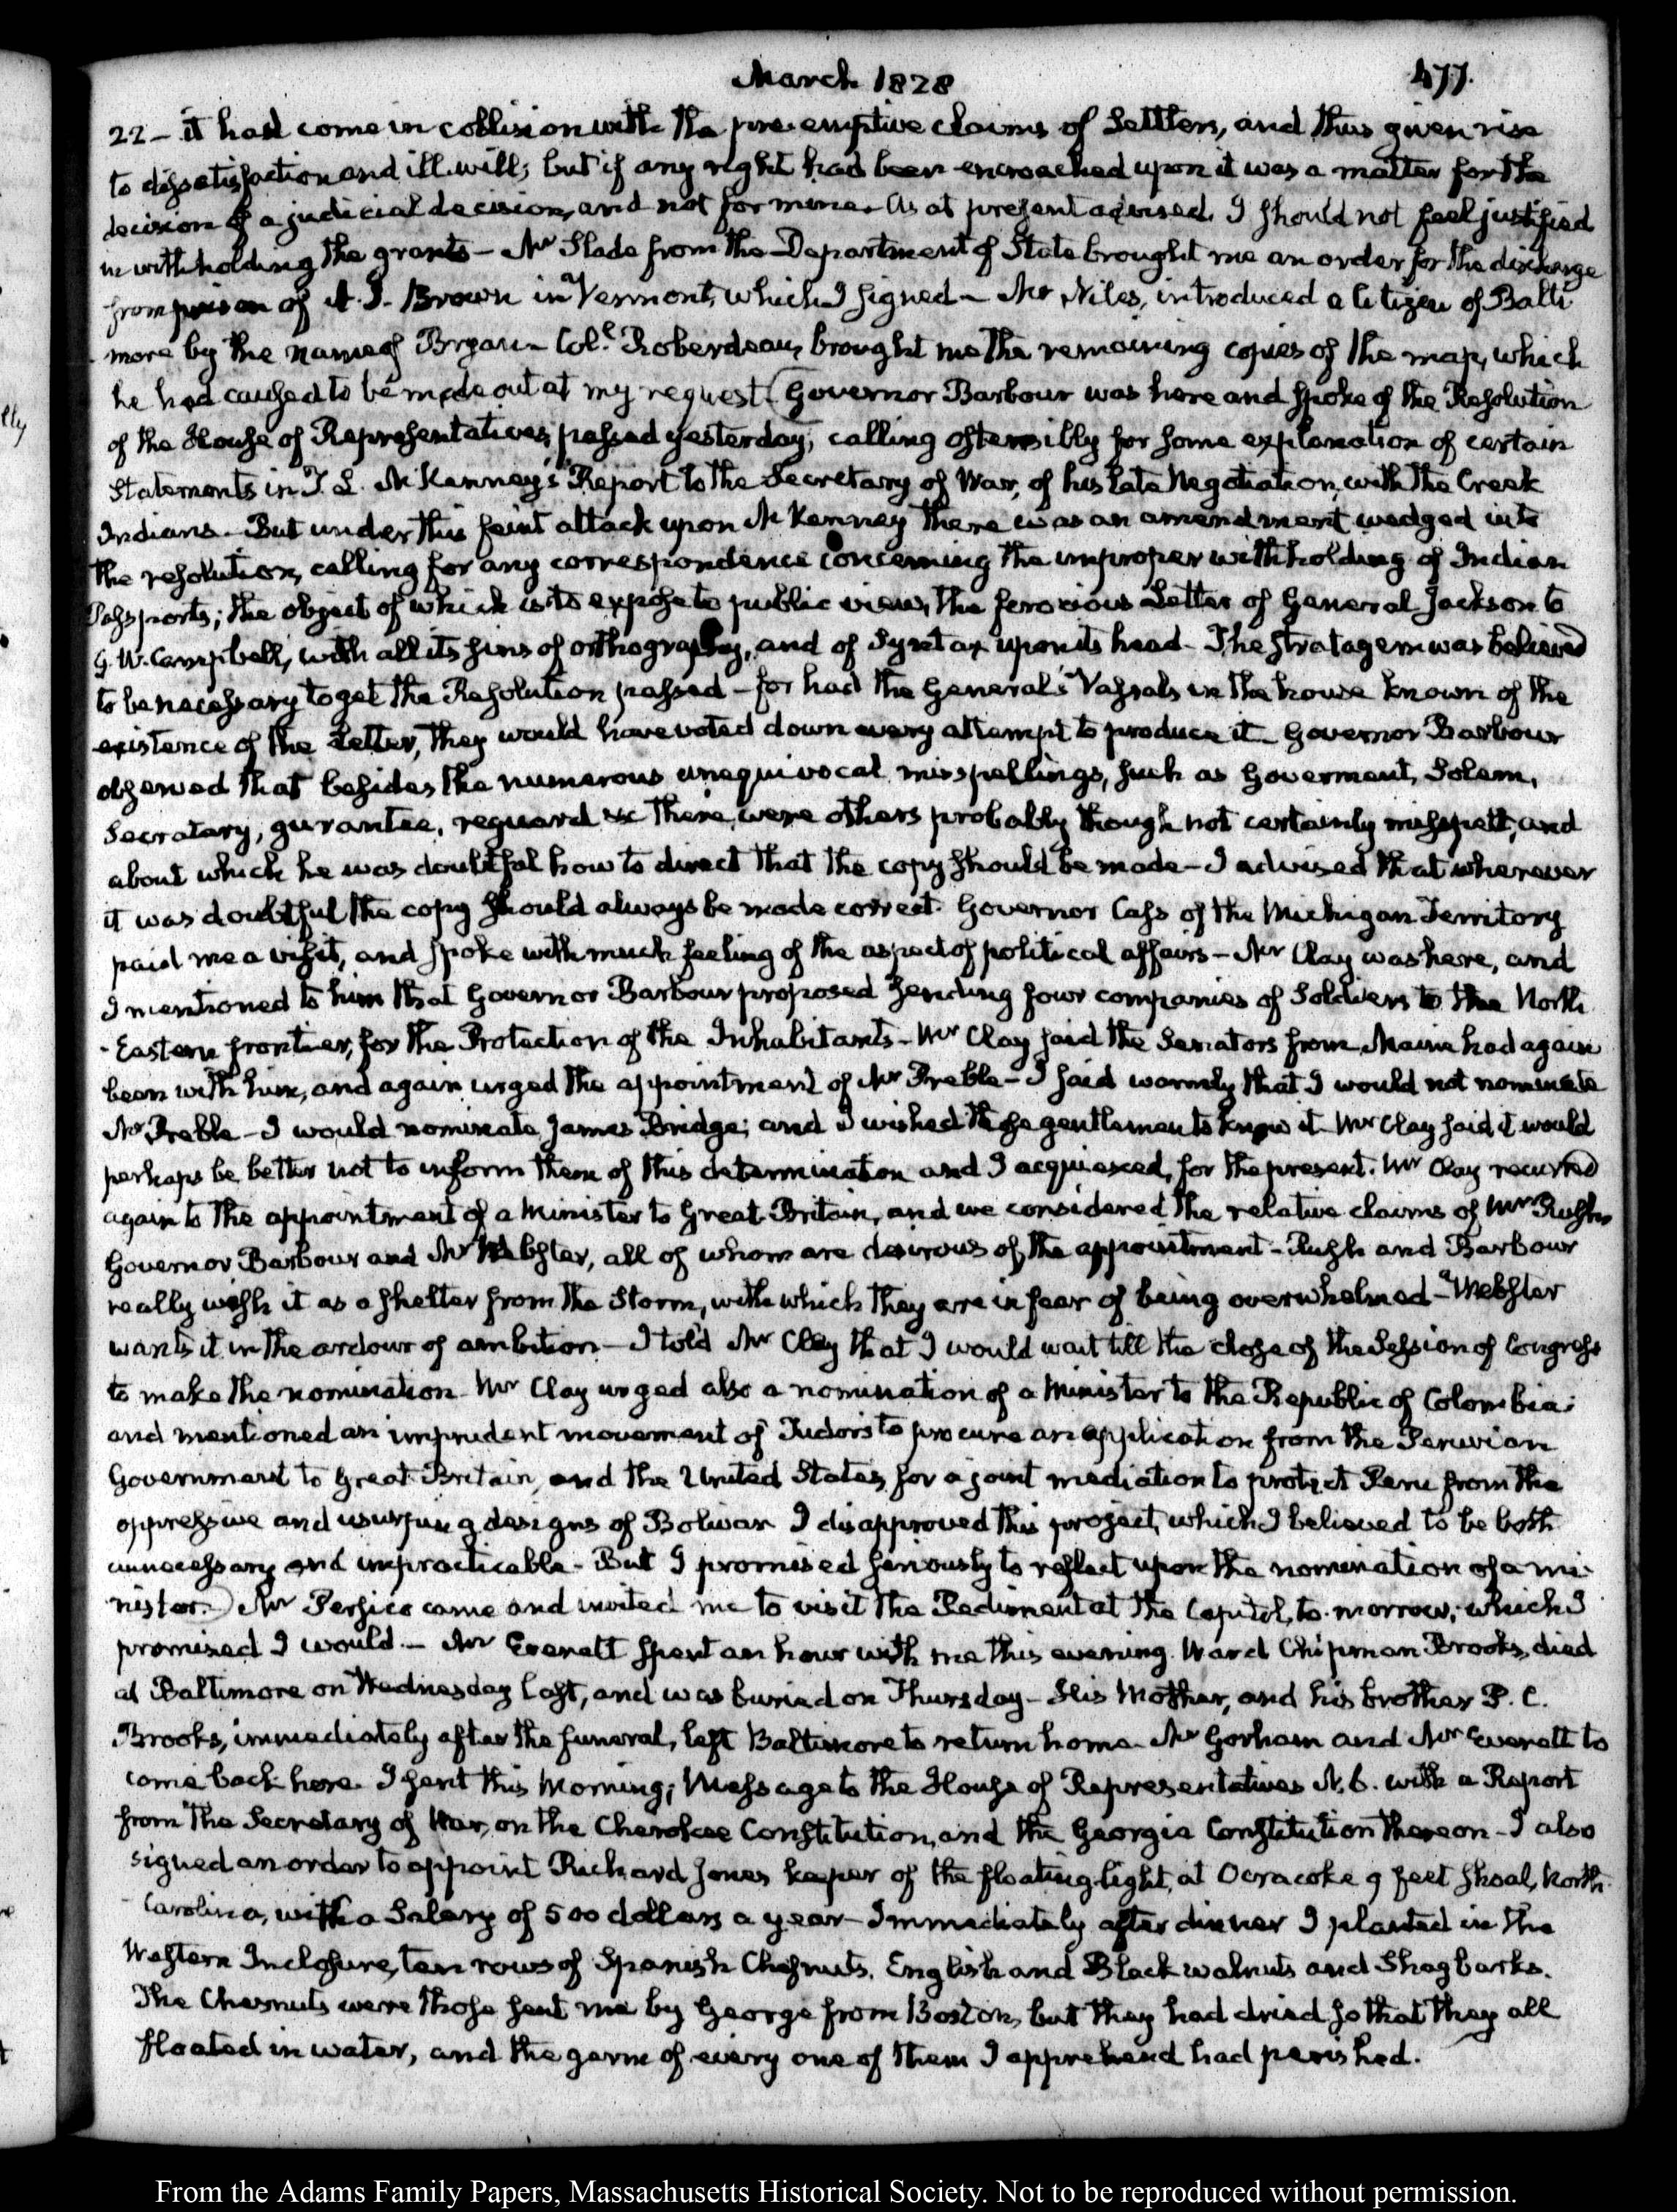 March 1828
477.
22 – it had come in collision with the pre-emptive claims of Settlers, and thus given rise
to dissatisfaction and ill will; but if any right had been encroached upon it was a matter for the
decision of a judicial decision, and not for mine. As at present advised, I should not feel justified
in withholding the grants – Mr Slade from the Department of State brought me an order for the discharge
from prison of A. J. Brown in Vermont, which I signed – Mr Niles, introduced a Citizen of Balti
more by the name of Bryan – Coll. Roberdeau, brought me the remaining copies of the map, which
he had caused to be made out at my request (Governor Barbour was here and spoke of the Resolution
of the House of Representatives, passed yesterday, calling ostensibly for some explanation of certain
Statements in T. L. McKenney's Report to the Secretary of War, of his late Negotiation, with the Creek
Indians. But under this feint attack upon McKenney there was an amendment wedged into
the resolution, calling for any correspondence concerning the improper withholding of Indian
Passports; the object of which is to expose to public view, the ferocious Letter of General Jackson to
G. W. Campbell, with all its sins of orthography, and of Syntax upon its head – The stratagem was believed
to be necessary to get the Resolution passed – for had the General's Vassals in the house known of the
existence of the Letter, they would have voted down every attempt to produce it – Governor Barbour
observed that besides the numerous unequivocal misspellings, such as Goverment, Solem,
Secratary, gurantee, reguard &c there were others probably though not certainly misspelt, and
about which he was doubtful how to direct that the copy should be made – I advised that wherever
it was doubtful the copy should always be made correct. Governor Cass of the Michigan Territory
paid me a visit, and spoke with much feeling of the aspect of political affairs – Mr Clay was here, and
I mentioned to him that Governor Barbour proposed sending four companies of Soldiers to the North
-Eastern frontier, for the Protection of the Inhabitants – Mr Clay said the Senators from Maine had again
been with him, and again urged the appointment of Mr Preble – I said warmly that I would not nominate
Mr Preble – I would nominate James Bridge; and I wished those gentlemen to know it. Mr Clay said it would
perhaps be better not to inform them of this determination and I acquiesced, for the present. Mr Clay recurred
again to the appointment of a Minister to Great-Britain, and we considered the relative claims of Mr Rush,
Governor Barbour and Mr Webster, all of whom are desirous of the appointment – Rush and Barbour
really wish it as a shelter from the Storm, with which they are in fear of being overwhelmed – Webster
wants it in the ardour of ambition – I told Mr Clay that I would wait till the close of the Session of Congress
to make the nomination. Mr Clay urged also a nomination of a Minister to the Republic of Colombia;
and mentioned an imprudent movement of Tudor's to procure an application from the Peruvian
Government to Great-Britain, and the United States, for a joint mediation to protect Peru from the
oppressive and usurping designs of Bolivar. I disapproved this project, which I believed to be both
unnecessary and impracticable – But I promised seriously to reflect upon the nomination of a mi-
nister.) Mr Persico came and invited me to visit the Pediment at the Capitol, to-morrow; which I
promised I would. – Mr Everett spent an hour with me this evening. Ward Chipman Brooks, died
at Baltimore on Wednesday last, and was buried on Thursday – His Mother, and his brother P. C.
Brooks, immediately after the funeral, left Baltimore to return home. Mr Gorham and Mr Everett to
come back here. I sent this Morning; Message to the House of Representatives N. 6. with a Report
from the Secretary of War, on the Cherokee Constitution, and the Georgia Constitution thereon – I also
signed an order to appoint Richard Jones keeper of the floating light, at Ocracoke 9 feet shoal, North-
Carolina, with a Salary of 500 dollars a year – Immediately after dinner I planted in the
Western Inclosure, ten rows of Spanish Chesnuts, English and Black walnuts and Shagbarks.
The Chesnuts were those sent me by George from Boston, but they had dried so that they all
floated in water, and the germ of every one of them I apprehend had perished.
From the Adams Family Papers, Massachusetts Historical Society. Not to be reproduced without permission.